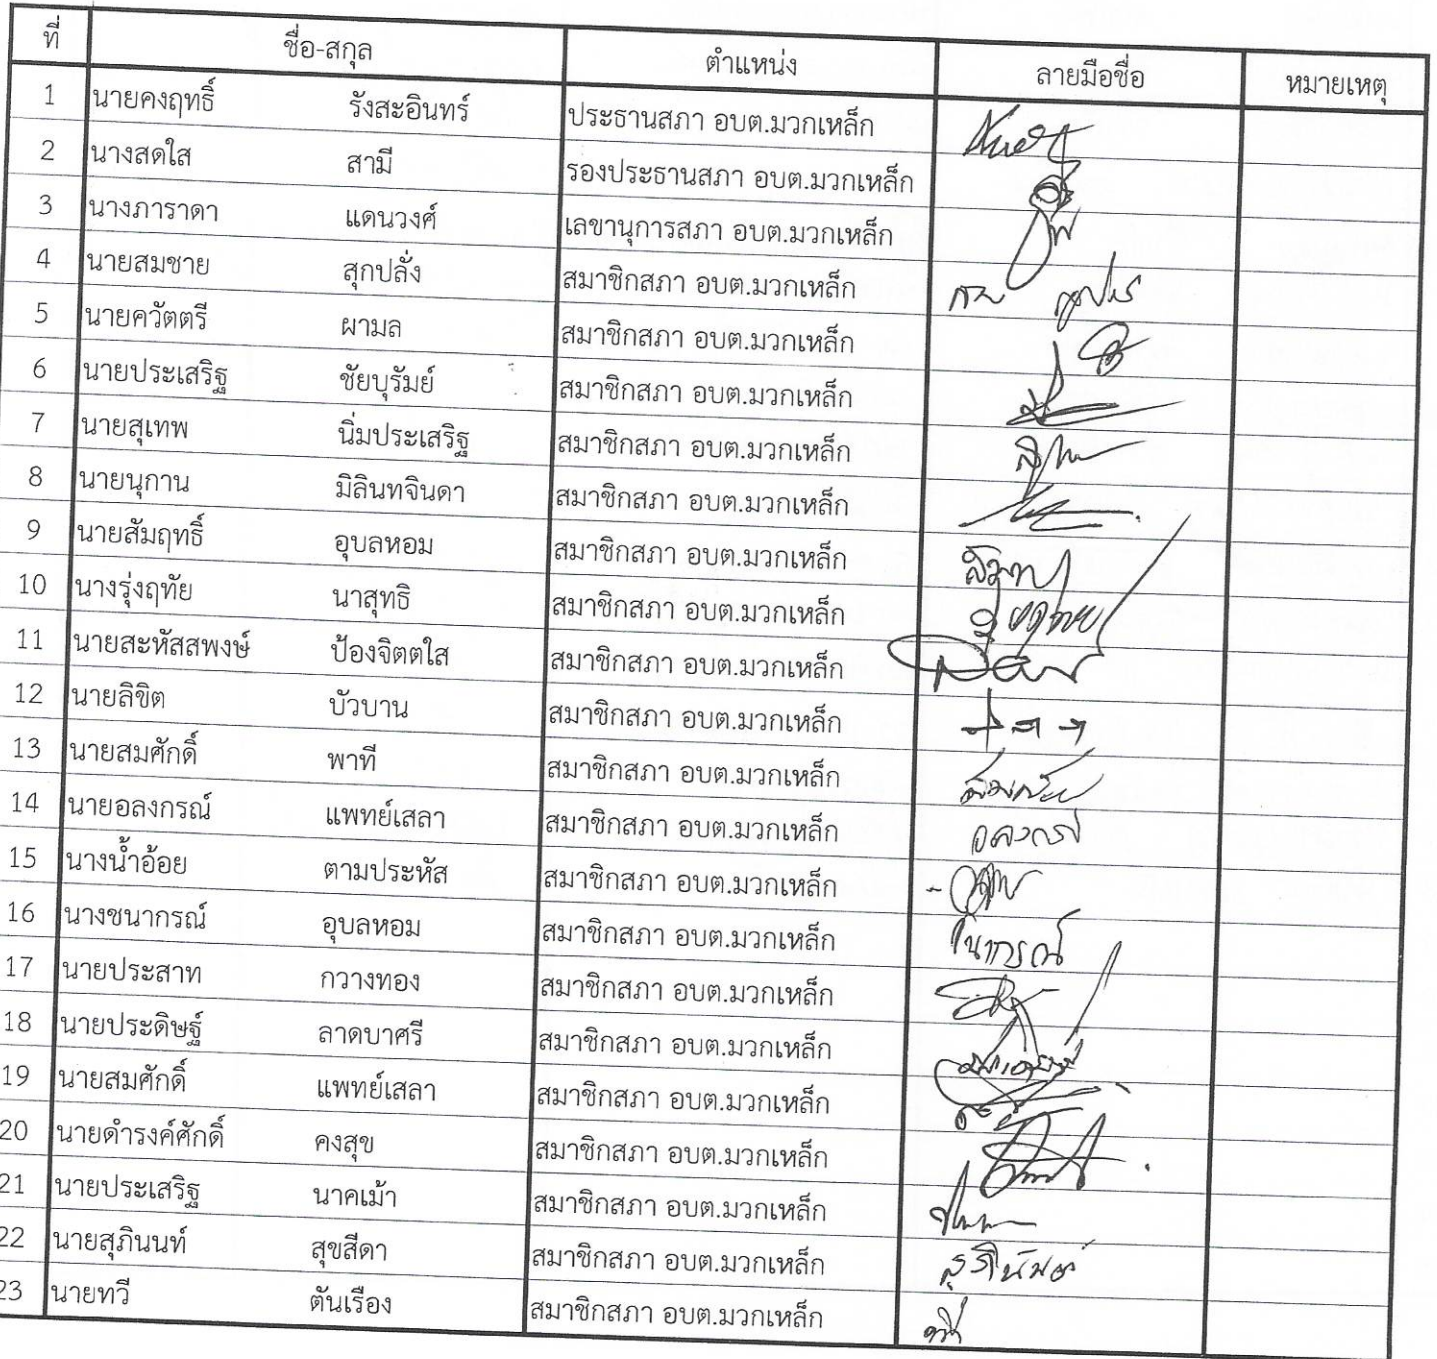 ที่ ชื่อ-สกุล ตำแหน่ง ลายมือชื่อ หมายเหตุ
1 นายคงฤทธิ์ รังสะอินทร์ ประธานสภา อบต.มวกเหล็ก
2 นางสดใส สามี รองประธานสภา อบต.มวกเหล็ก
3 นางภาราดา แดนวงศ์ เลขานุการสภา อบต.มวกเหล็ก
4 นายสมชาย สุกปลั่ง สมาชิกสภา อบต.มวกเหล็ก
5 นายควัตตรี ผามล สมาชิกสภา อบต.มวกเหล็ก
6 นายประเสริฐ ชัยบุรัมย์ สมาชิกสภา อบต.มวกเหล็ก
7 นายสุเทพ นิ่มประเสริฐ สมาชิกสภา อบต.มวกเหล็ก
8 นายนุกาน มิลินทจินดา สมาชิกสภา อบต.มวกเหล็ก
9 นายสัมฤทธิ์ อุบลหอม สมาชิกสภา อบต.มวกเหล็ก
10 นางรุ่งฤทัย นาสุทธิ สมาชิกสภา อบต.มวกเหล็ก
11 นายสะหัสสพงษ์ ป้องจิตตใส สมาชิกสภา อบต.มวกเหล็ก
12 นายลิขิต บัวบาน สมาชิกสภา อบต.มวกเหล็ก
13 นายสมศักดิ์ พาที สมาชิกสภา อบต.มวกเหล็ก
14 นายอลงกรณ์ แพทย์เสลา สมาชิกสภา อบต.มวกเหล็ก
15 นางน้ำอ้อย ตามประหัส สมาชิกสภา อบต.มวกเหล็ก
16 นางชนากรณ์ อุบลหอม สมาชิกสภา อบต.มวกเหล็ก
17 นายประสาท กวางทอง สมาชิกสภา อบต.มวกเหล็ก
18 นายประดิษฐ์ ลาดบาศรี สมาชิกสภา อบต.มวกเหล็ก
19 นายสมศักดิ์ แพทย์เสลา สมาชิกสภา อบต.มวกเหล็ก
20 นายดำรงค์ศักดิ์ คงสุข สมาชิกสภา อบต.มวกเหล็ก
21 นายประเสริฐ นาคเม้า สมาชิกสภา อบต.มวกเหล็ก
22 นายสุภินนท์ สุขสีดา สมาชิกสภา อบต.มวกเหล็ก
23 นายทวี ตันเรือง สมาชิกสภา อบต.มวกเหล็ก